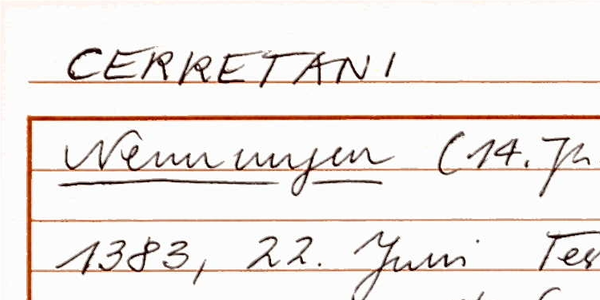 CERRETANI
Nennungen (14. Jh
1383, 22. Juni Tes